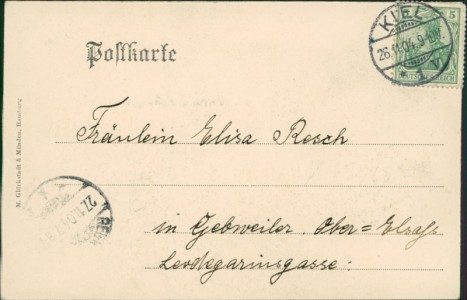 Postkarte
KIEL
26.11.04. 9-10V.
5
Fräulein Elisa Resch
in Gebweiler. Ober=Elsaß
Leodegariusgasse.
27.11.0
M. Glückstadt & Münden, Hamburg